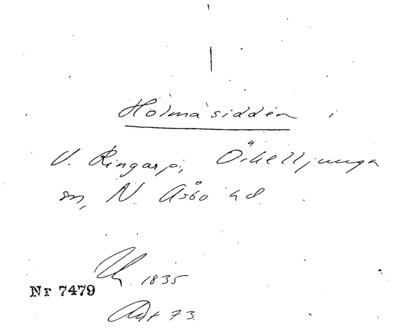 Holmasidden i
V. Ringarp, Örkelljunga
sn, N. Åsbo hd.
1835
Nr 7479
Akt 73.